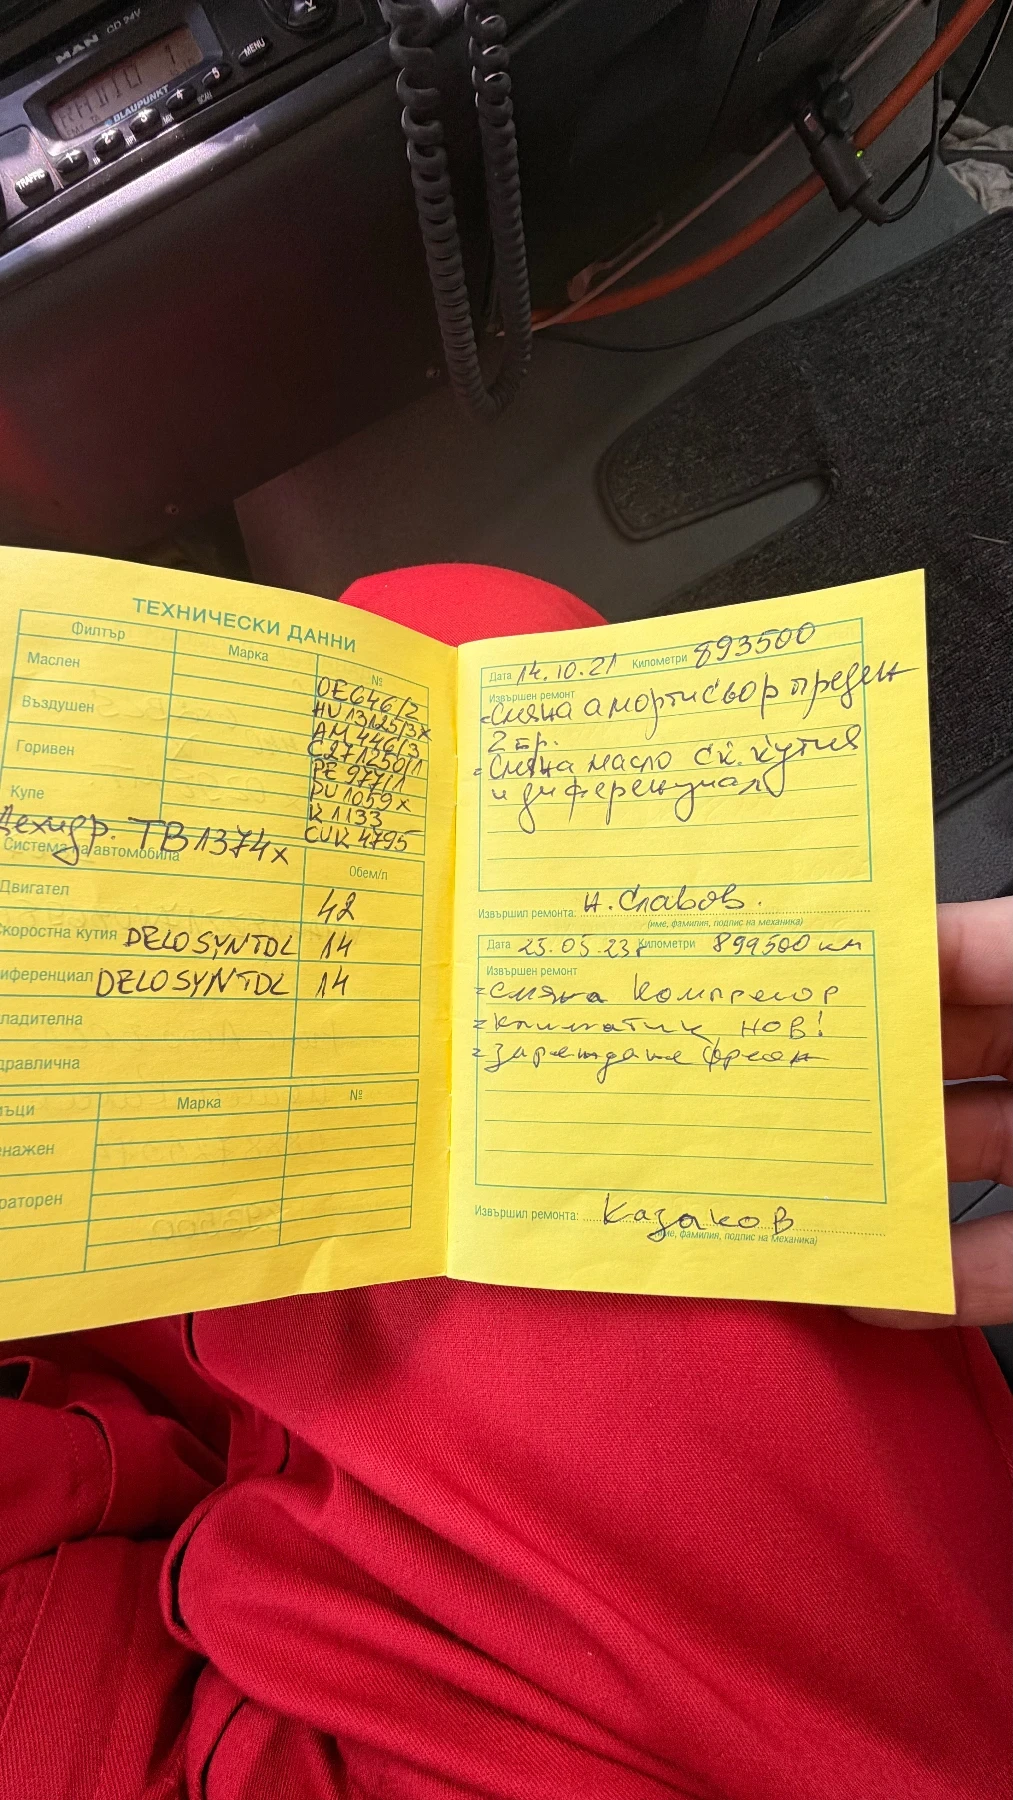 MAN CD 24V
RADIO 1
BLAUPUNKT
MENU
TRAFFIC 1 2 3 4 5
MIX SCAN
ТЕХНИЧЕСКИ ДАННИ
Филтър Марка №
Маслен
OE646/2
HU 13125/3x
Въздушен
AM 446/3
C271250/1
Горивен
PE 977/1
PU 1059x
Купе
K 1133
CUK 4795
Дехидр. TB1374x
Система на автомобила Обем/л
Двигател 42
коростна кутия DELO SYNTDL 14
иференциал DELO SYNTDL 14
ладителна
дравлична
ъци Марка №
нажен
раторен
Дата 14.10.21 Километри 893500
Извършен ремонт
=Смяна амортисьор преден
2 бр.
=Смяна масло ск. кутия
и диференциал
Извършил ремонта: Н. Славов.
(име, фамилия, подпис на механика)
Дата 25.05.23г Километри 899500 км
Извършен ремонт
=Смяна компресор
=климатик нов!
=Зареждане фреон
Извършил ремонта: Казаков
(име, фамилия, подпис на механика)